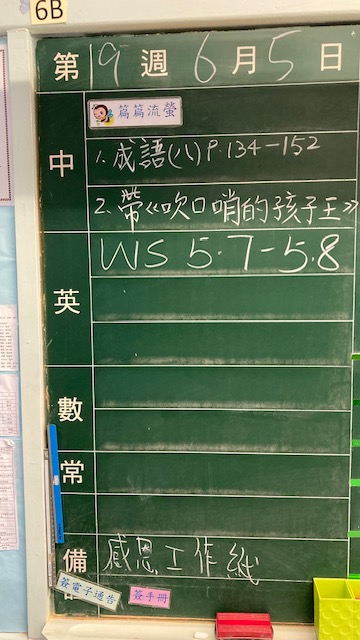 6B
第19週6月5日
篇篇流螢
中
1. 成語(八)P.134-152
2. 帶《吹口哨的孩子王》
英
WS 5.7-5.8
數
常
備
感恩工作紙
簽電子通告
簽手冊